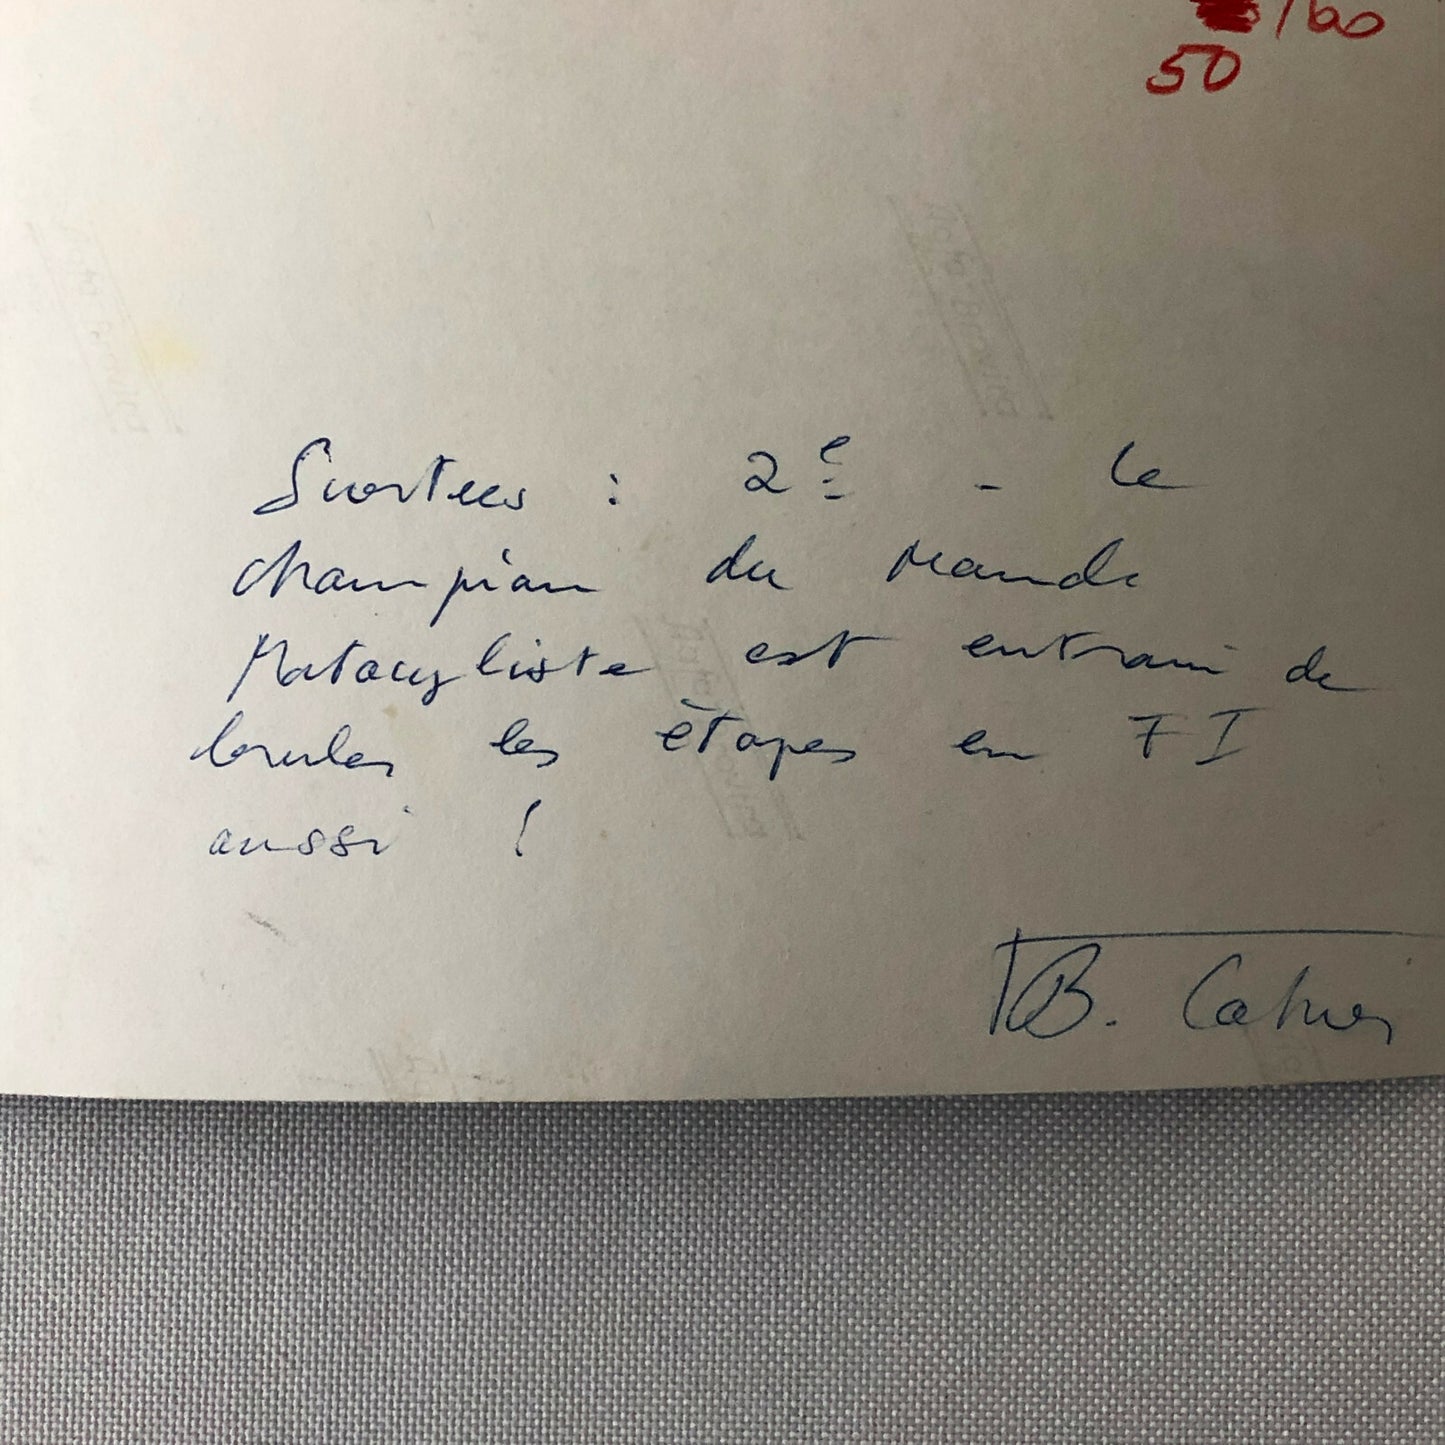 /60
50
Surtees : 2e - le
champion du Monde
Motocycliste est entrain de
bruler les étapes en F I
aussi !
B. Cahier